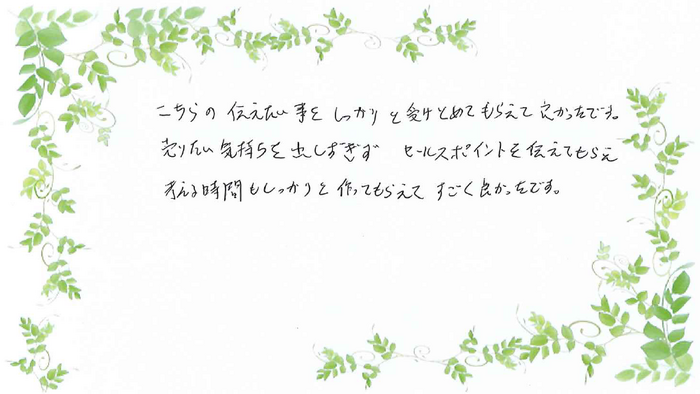 こちらの 伝えたい事を しっかりと受けとめてもらえて良かったです。
売りたい気持ちを出しすぎず セールスポイントを伝えてもらえ
考える時間もしっかりと作ってもらえて すごく良かったです。